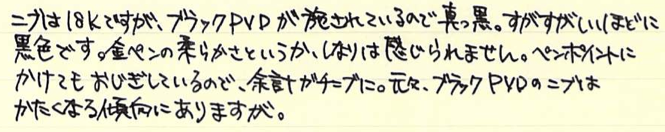 ニブは18Kですが、ブラックPVDが施されているので真っ黒。すがすがしいほどに
黒色です。金ペンの柔らかさというか、しなりは感じられません。ペンポイントに
かけてもおじぎしているので、余計ガチニブに。元々、ブラックPVDのニブは
かたくなる傾向にありますが。